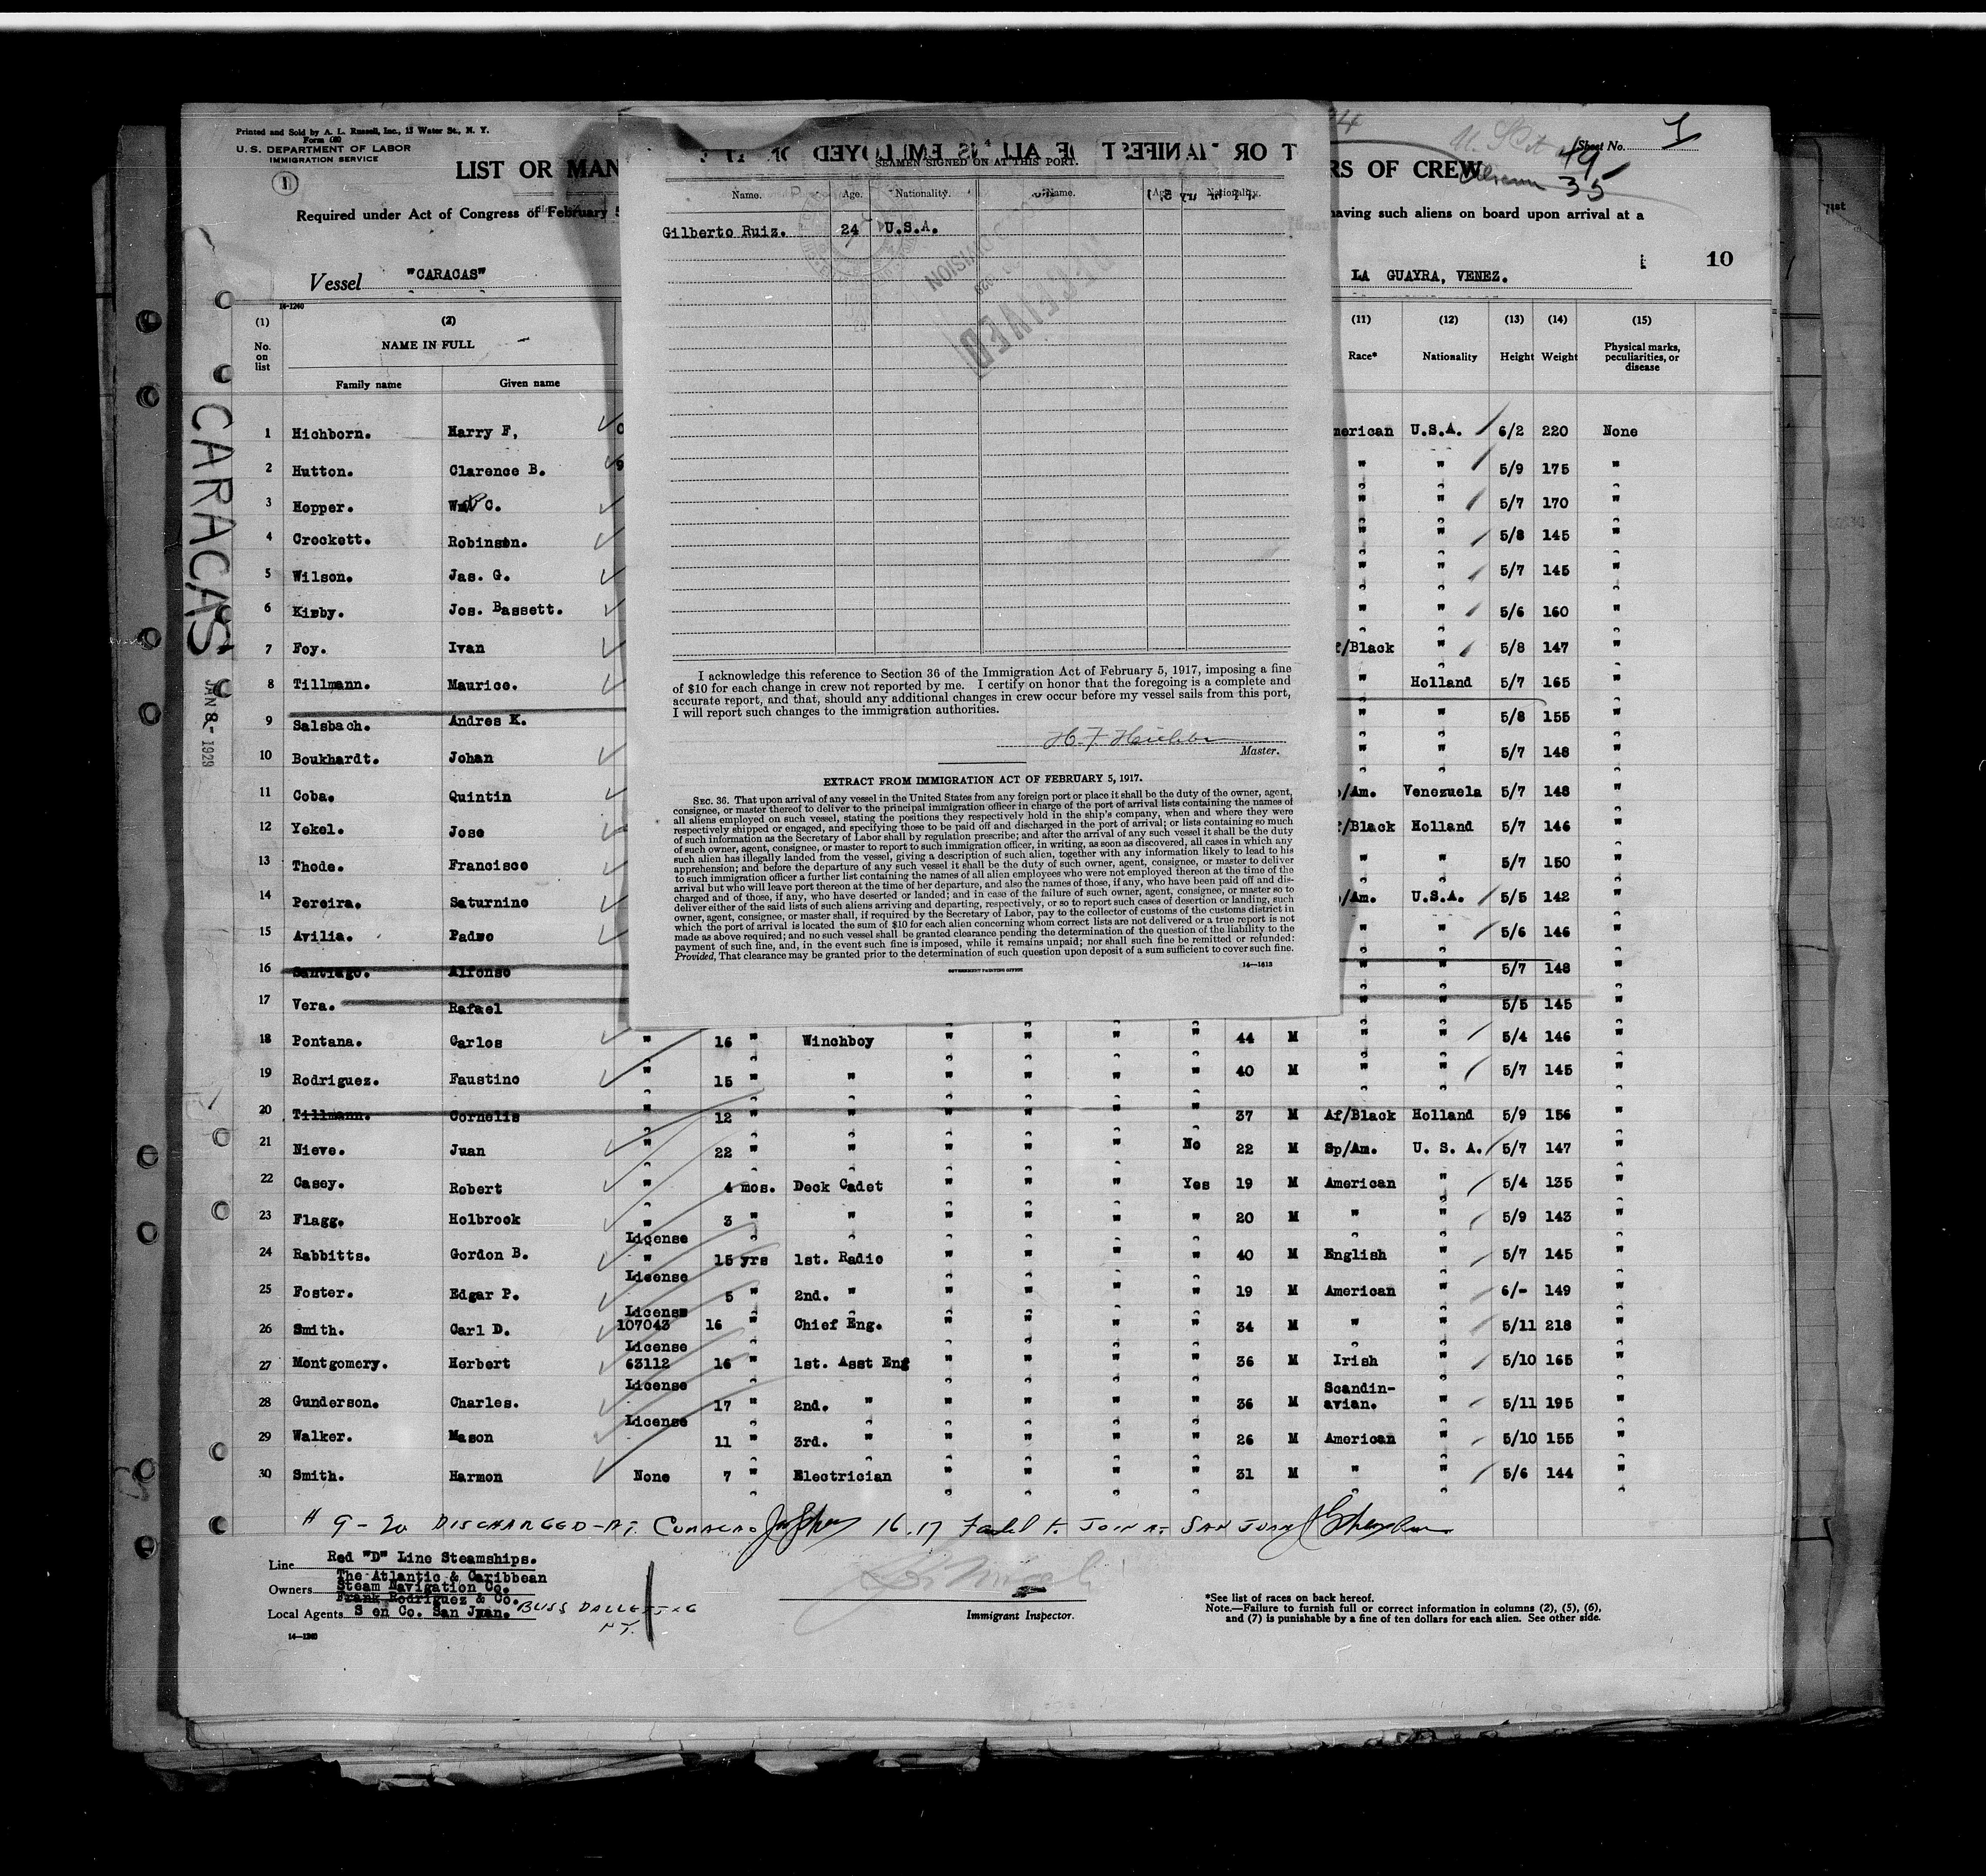 Printed and Sold by A. L. Russell, Inc., 13 Water St., N. Y.
Form 680
U. S. DEPARTMENT OF LABOR
IMMIGRATION SERVICE
1
Sheet No. 1
49
35
LIST OR MAN
RS OF CREW
Required under Act of Congress of February 5
having such aliens on board upon arrival at a
Vessel "CARACAS"
LA GUAYRA, VENEZ.
10
14-1240
(1) (2) (11) (12) (13) (14) (15)
No. on list NAME IN FULL Race* Nationality Height Weight Physical marks, peculiarities, or disease
Family name Given name
CARACAS
JAN 8- 1929
1 Hichborn. Harry F, merican U.S.A. 6/2 220 None
2 Hutton. Clarence B. " " 5/9 175 "
3 Hopper. C. " " 5/7 170 "
4 Crockett. Robinson. " " 5/8 145 "
5 Wilson. Jas. G. " " 5/7 145 "
6 Kirby. Jos. Bassett. " " 5/6 160 "
7 Foy. Ivan f/Black " 5/8 147 "
8 Tillmann. Maurice. " Holland 5/7 165 "
9 Salsbach. Andres K. " " 5/8 155 "
10 Boukhardt. Johan " " 5/7 148 "
11 Coba. Quintin /Am. Venezuela 5/7 148 "
12 Yekel. Jose f/Black Holland 5/7 146 "
13 Thode. Francisco " " 5/7 150 "
14 Pereira. Saturnino /Am. U.S.A. 5/5 142 "
15 Avilia. Padro " " 5/6 146 "
16 Santiago. Alfonso " " 5/7 148 "
17 Vera. Rafael " " 5/5 145 "
18 Pontana. Carlos " 16 " Winchboy " " " " 44 M " " 5/4 146 "
19 Rodriguez. Faustino " 15 " " " " " " 40 M " " 5/7 145 "
20 Tillmann. Cornelis " 12 " " " " " " 37 M Af/Black Holland 5/9 156 "
21 Nieve. Juan " 22 " " " " " No 22 M Sp/Am. U. S. A. 5/7 147 "
22 Casey. Robert " 4 mos. Deck Cadet " " " Yes 19 M American " 5/4 135 "
23 Flagg. Holbrook " 3 " " " " " " 20 M " " 5/9 143 "
24 Rabbitts. Gordon B. License " 15 yrs 1st. Radio " " " " 40 M English " 5/7 145 "
25 Foster. Edgar P. License 5 " 2nd. " " " " " 19 M American " 6/- 149 "
26 Smith. Carl D. License 107043 16 " Chief Eng. " " " " 34 M " " 5/11 218 "
27 Montgomery. Herbert License 63112 16 " 1st. Asst Eng " " " " 36 M Irish " 5/10 165 "
28 Gunderson. Charles. License 17 " 2nd. " " " " " 36 M Scandin-avian. " 5/11 195 "
29 Walker. Mason License 11 " 3rd. " " " " " 26 M American " 5/10 155 "
30 Smith. Harmon None 7 " Electrician " " " " 31 M " " 5/6 144 "
# 9-20 DISCHARGED-AT. CURACAO 16.17 Failed to JOIN AT SAN JUAN
Line Red "D" Line Steamships.
Owners The Atlantic & Caribbean
Steam Navigation Co.
Frank Rodriguez & Co.
Local Agents S en Co. San Juan. BLISS DALLETT & CO
N.Y.
14-1240
Immigrant Inspector.
*See list of races on back hereof.
Note.—Failure to furnish full or correct information in columns (2), (5), (6),
and (7) is punishable by a fine of ten dollars for each alien. See other side.
SEAMEN SIGNED ON AT THIS PORT.
Name. Age. Nationality. Name. Age. Nationality.
Gilberto Ruiz. 24 U.S.A.
RECEIVED
DIVISION
I acknowledge this reference to Section 36 of the Immigration Act of February 5, 1917, imposing a fine
of $10 for each change in crew not reported by me. I certify on honor that the foregoing is a complete and
accurate report, and that, should any additional changes in crew occur before my vessel sails from this port,
I will report such changes to the immigration authorities.
H. F. Hichborn
Master.
EXTRACT FROM IMMIGRATION ACT OF FEBRUARY 5, 1917.
SEC. 36. That upon arrival of any vessel in the United States from any foreign port or place it shall be the duty of the owner, agent,
consignee, or master thereof to deliver to the principal immigration officer in charge of the port of arrival lists containing the names of
all aliens employed on such vessel, stating the positions they respectively hold in the ship's company, when and where they were
respectively shipped or engaged, and specifying those to be paid off and discharged in the port of arrival; or lists containing so much
of such information as the Secretary of Labor shall by regulation prescribe; and after the arrival of any such vessel it shall be the duty
of such owner, agent, consignee, or master to report to such immigration officer, in writing, as soon as discovered, all cases in which any
such alien has illegally landed from the vessel, giving a description of such alien, together with any information likely to lead to his
apprehension; and before the departure of any such vessel it shall be the duty of such owner, agent, consignee, or master to deliver
to such immigration officer a further list containing the names of all alien employees who were not employed thereon at the time of the
arrival but who will leave port thereon at the time of her departure, and also the names of those, if any, who have been paid off and dis-
charged and of those, if any, who have deserted or landed; and in case of the failure of such owner, agent, consignee, or master so to
deliver either of the said lists of such aliens arriving and departing, respectively, or so to report such cases of desertion or landing, such
owner, agent, consignee, or master shall, if required by the Secretary of Labor, pay to the collector of customs of the customs district in
which the port of arrival is located the sum of $10 for each alien concerning whom correct lists are not delivered or a true report is not
made as above required; and no such vessel shall be granted clearance pending the determination of the question of the liability to the
payment of such fine, and, in the event such fine is imposed, while it remains unpaid; nor shall such fine be remitted or refunded:
Provided, That clearance may be granted prior to the determination of such question upon deposit of a sum sufficient to cover such fine.
GOVERNMENT PRINTING OFFICE
14—1613